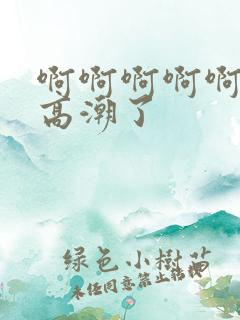 啊啊啊啊啊
高潮了
绿色小树苗
未经同意禁止转载